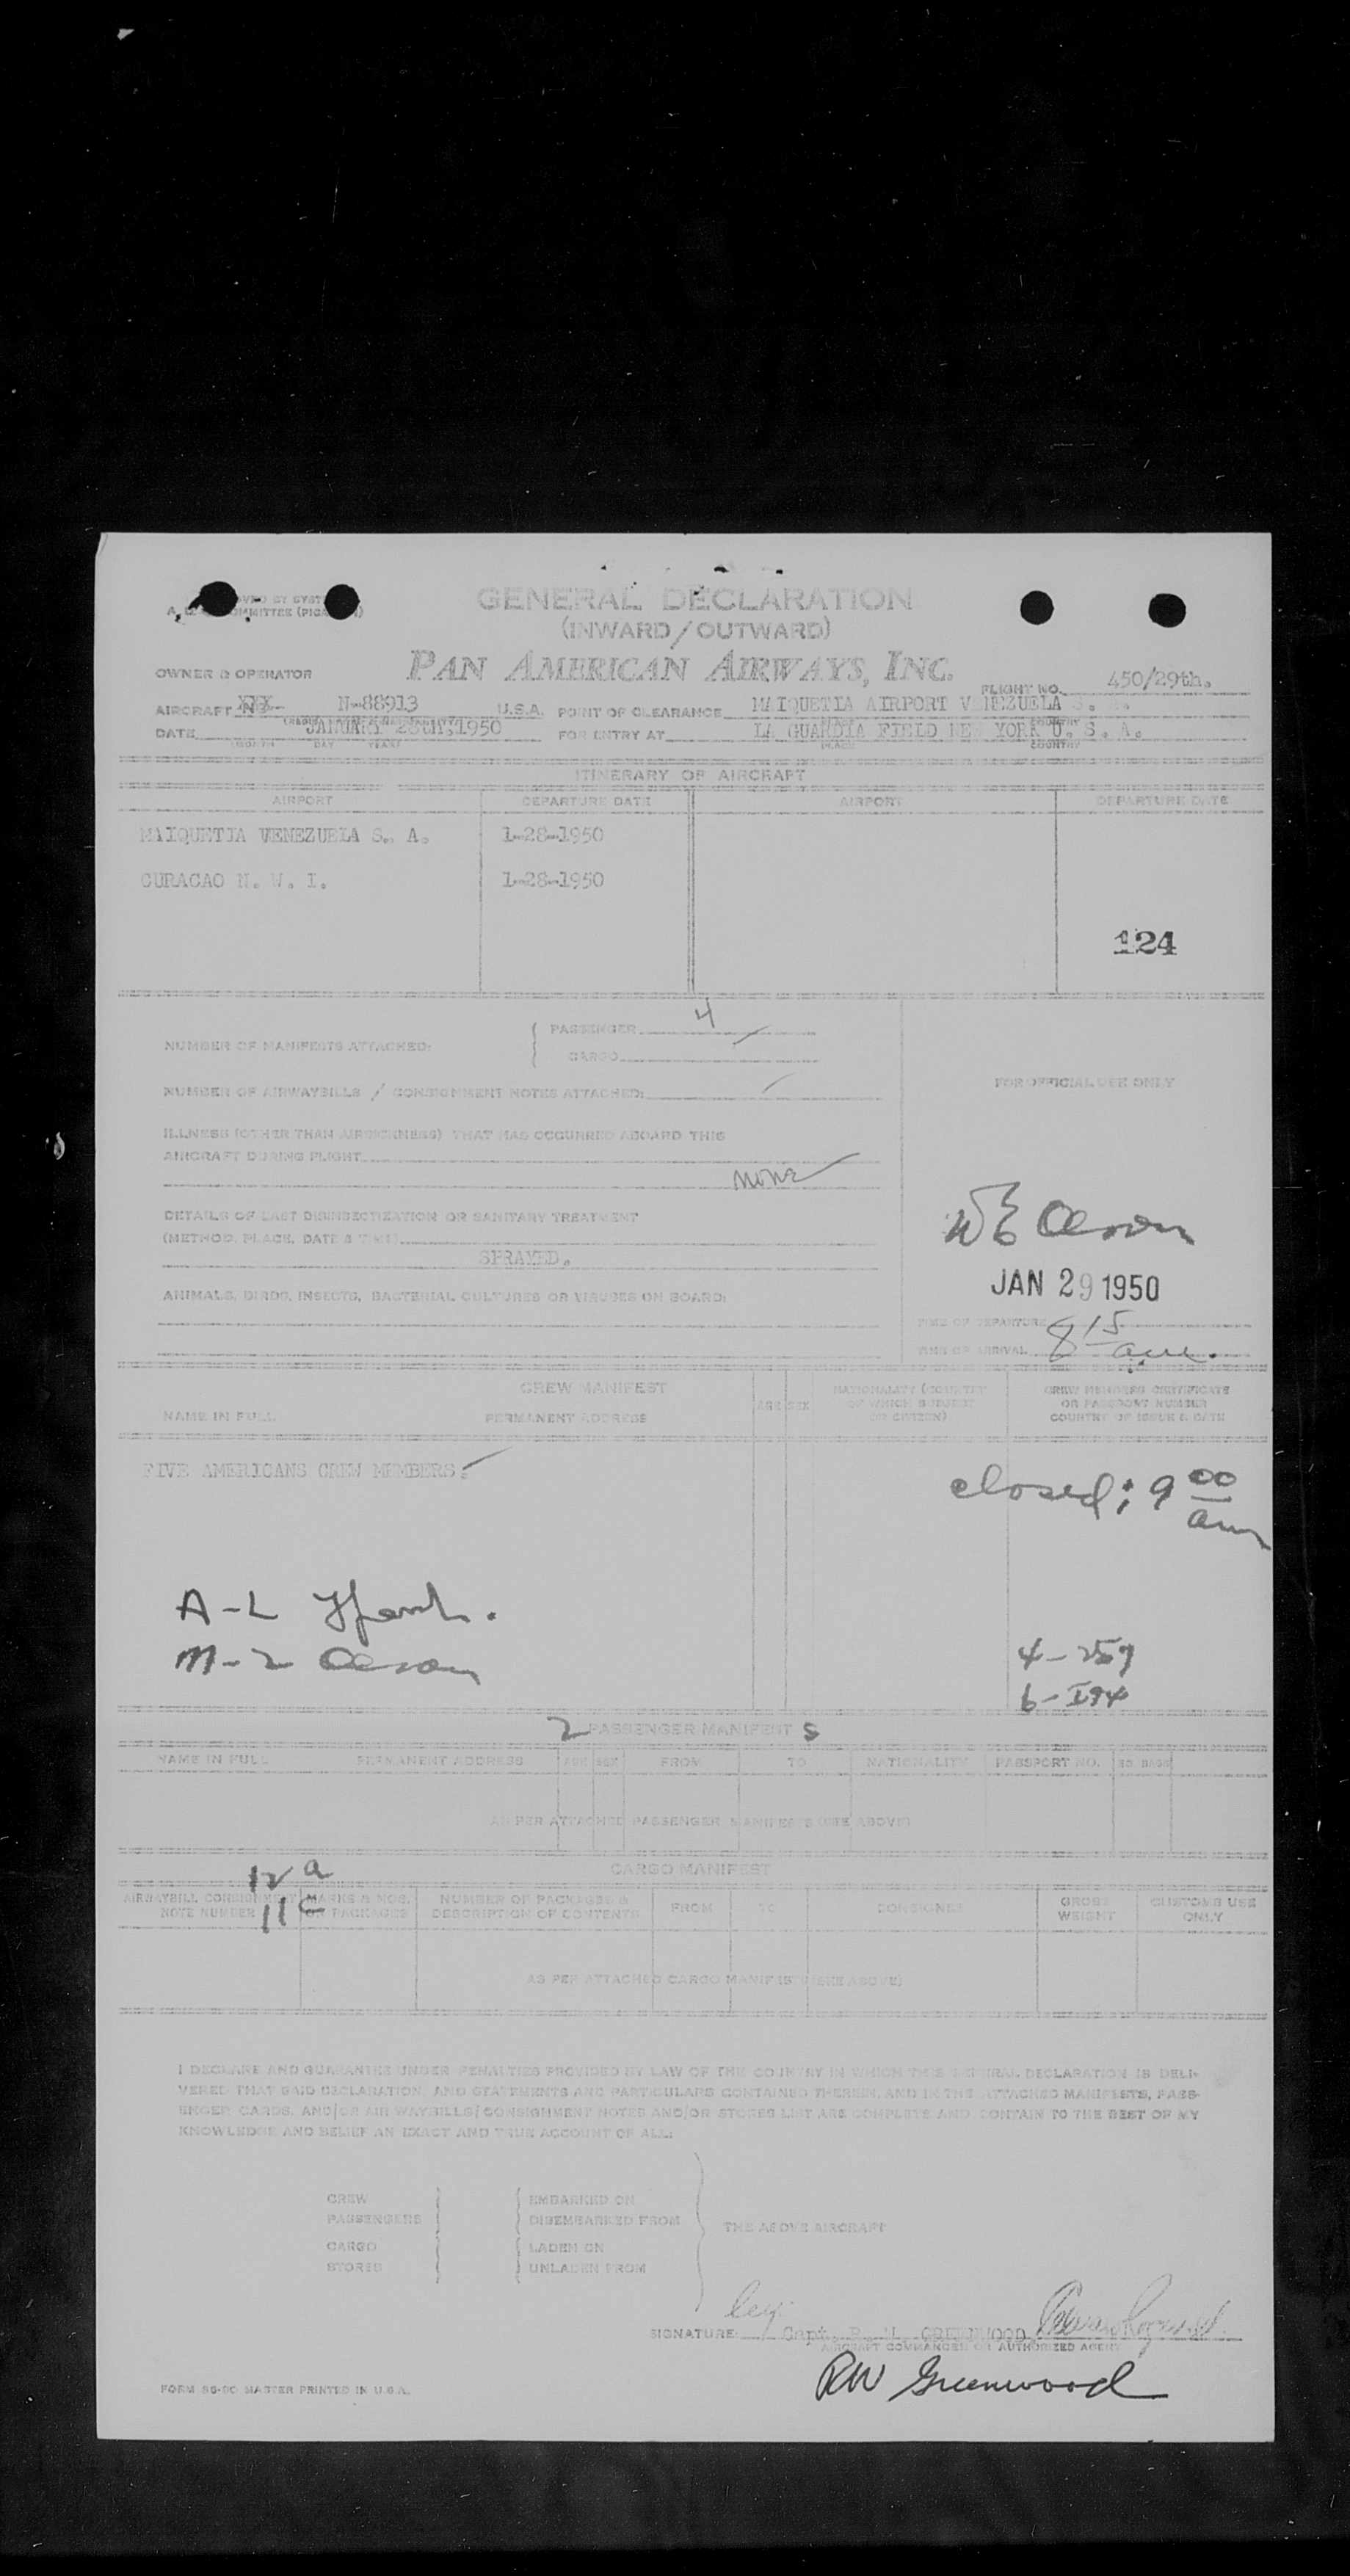 GENERAL DECLARATION
(INWARD/OUTWARD)
OWNER & OPERATOR PAN AMERICAN AIRWAYS, INC. FLIGHT NO. 450/29th.
AIRCRAFT N-88913 U.S.A. POINT OF CLEARANCE MAIQUETIA AIRPORT VENEZUELA S.
DATE JANUARY 28th, 1950 FOR ENTRY AT LA GUARDIA FIELD NEW YORK U. S. A.
MONTH DAY YEAR COUNTRY
ITINERARY OF AIRCRAFT
AIRPORT DEPARTURE DATE AIRPORT DEPARTURE DATE
MAIQUETIA VENEZUELA S. A. 1-28-1950
CURACAO N. W. I. 1-28-1950
124
PASSENGER 4
NUMBER OF MANIFESTS ATTACHED:
CARGO
FOR OFFICIAL USE ONLY
NUMBER OF AIRWAYBILLS / CONSIGNMENT NOTES ATTACHED:
ILLNESS (OTHER THAN AIRSICKNESS) THAT HAS OCCURRED ABOARD THIS
AIRCRAFT DURING FLIGHT
none
DETAILS OF LAST DISINSECTIZATION OR SANITARY TREATMENT
(METHOD, PLACE, DATE & TIME)
SPRAYED.
JAN 29 1950
ANIMALS, BIRDS, INSECTS, BACTERIAL CULTURES OR VIRUSES ON BOARD:
TIME OF DEPARTURE
TIME OF ARRIVAL 8 15 am.
CREW MANIFEST
NAME IN FULL PERMANENT ADDRESS AGE SEX NATIONALITY (COUNTRY OF WHICH SUBJECT OR CITIZEN) CREW MEMBERS CERTIFICATE OR PASSPORT NUMBER COUNTRY OF ISSUE & DATE
FIVE AMERICANS CREW MEMBERS.
closed: 9 00 am
A-L
M-2
4-257
6-I94
2 PASSENGER MANIFEST S
NAME IN FULL PERMANENT ADDRESS AGE SEX FROM TO NATIONALITY PASSPORT NO.
AS PER ATTACHED PASSENGER MANIFESTS (SEE ABOVE)
12 a
CARGO MANIFEST
11 c
AIRWAYBILL CONSIGNMENT NOTE NUMBER MARKS & NOS. ON PACKAGES NUMBER OF PACKAGES & DESCRIPTION OF CONTENTS FROM TO CONSIGNEE GROSS WEIGHT CUSTOMS USE ONLY
AS PER ATTACHED CARGO MANIFEST (SEE ABOVE)
I DECLARE AND GUARANTEE UNDER PENALTIES PROVIDED BY LAW OF THE COUNTRY IN WHICH THIS GENERAL DECLARATION IS DELI-
VERED THAT SAID DECLARATION, AND STATEMENTS AND PARTICULARS CONTAINED THEREIN, AND IN THE ATTACHED MANIFESTS, PASS-
ENGER CARDS, AND/OR AIR WAYBILLS/CONSIGNMENT NOTES AND/OR STORES LIST ARE COMPLETE AND CONTAIN TO THE BEST OF MY
KNOWLEDGE AND BELIEF AN EXACT AND TRUE ACCOUNT OF ALL:
CREW EMBARKED ON
PASSENGERS DISEMBARKED FROM
THE ABOVE AIRCRAFT
CARGO LADEN ON
STORES UNLADEN FROM
SIGNATURE Capt. R. W. GREENWOOD
AIRCRAFT COMMANDER OR AUTHORIZED AGENT
RW Greenwood
MASTER PRINTED IN U.S.A.